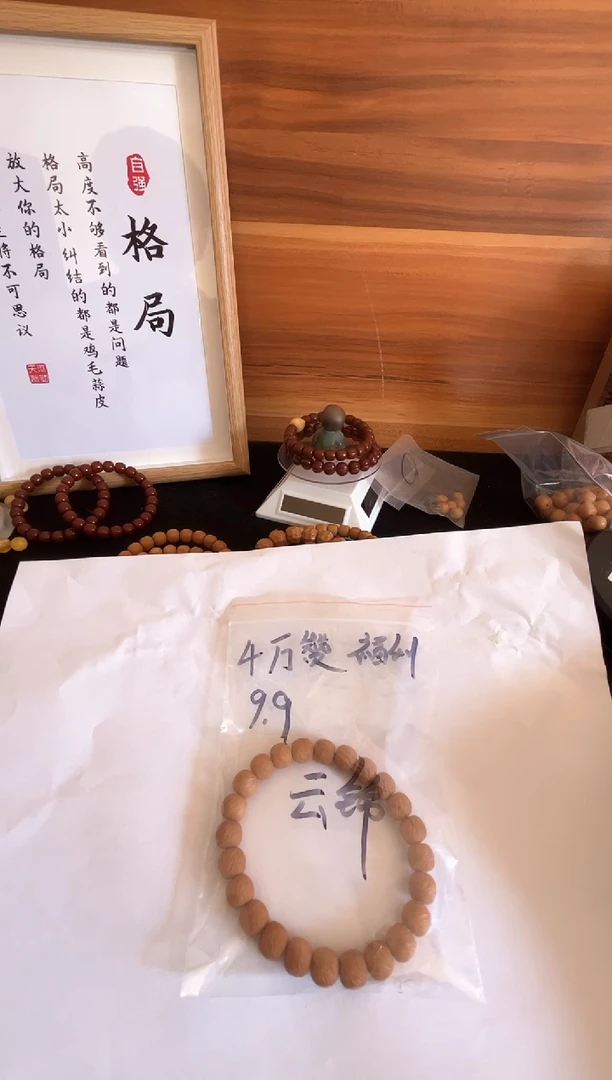 自强
格局
高度不够看到的都是问题
格局太小纠结的都是鸡毛蒜皮
放大你的格局
将不可思议
4万 福州
9.9
云